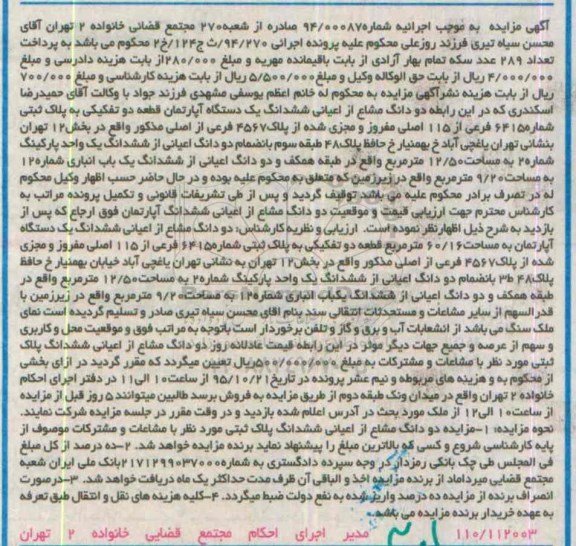 آگهی مزایده به موجب اجرائیه شماره۹۴/۰۰۰۸۷ صادره از شعبه۲۷۰ مجتمع قضائی خانواده ۲ تهران آقای
محسن سیاه تیری فرزند روزعلی محکوم علیه پرونده اجرائی ۹۴/۲۷۰/ث ج۱۲۴/خ۲ محکوم می باشد به پرداخت
تعداد ۲۸۹ عدد سکه تمام بهار آزادی از بابت باقیمانده مهریه و مبلغ ۲۸۰/۰۰۰از بابت هزینه دادرسی و مبلغ
۴/۰۰۰/۰۰۰ ریال از بابت حق الوکاله وکیل و مبلغ۵/۵۰۰/۰۰۰ ریال از بابت هزینه کارشناسی و مبلغ ۷۰۰/۰۰۰
ریال از بابت هزینه نشرآگهی مزایده به محکوم له خانم اعظم یوسفی مشهدی فرزند جواد با وکالت آقای حمیدرضا
اسکندری که در این رابطه دو دانگ مشاع از اعیانی ششدانگ یک دستگاه آپارتمان قطعه دو تفکیکی به پلاک ثبتی
شماره۶۴۱۵ فرعی از ۱۱۵ اصلی مفروز و مجزی شده از پلاک۴۵۶۷ فرعی از اصلی مذکور واقع در بخش۱۲ تهران
بنشانی تهران یاغچی آباد خ بهمنیار خ حافظ پلاک۴۸ طبقه سوم بانضمام دو دانگ اعیانی از ششدانگ یک واحد پارکینگ
شماره۲ به مساحت۱۲/۵۰ مترمربع واقع در طبقه همکف و دو دانگ اعیانی از ششدانگ یک باب انباری شماره۱۲
به مساحت۹/۲۰ مترمربع واقع در زیرزمین که متعلق به محکوم علیه بوده و در حال حاضر حسب اظهار وکیل محکوم
له در تصرف برادر محکوم علیه می باشد توقیف گردید و پس از طی تشریفات قانونی و تکمیل پرونده مراتب به
کارشناس محترم جهت ارزیابی قیمت و موقعیت دو دانگ مشاع از اعیانی ششدانگ آپارتمان فوق ارجاع که پس از
بازدید به شرح ذیل اظهارنظر نموده است. ارزیابی و نظریه کارشناس: دو دانگ مشاع از اعیانی ششدانگ یک دستگاه
آپارتمان به مساحت۶۰/۱۶ مترمربع قطعه دو تفکیکی به پلاک ثبتی شماره۶۴۱۵ فرعی از ۱۱۵ اصلی مفروز و مجزی
شده از پلاک۴۵۶۷ فرعی از اصلی مذکور واقع در بخش۱۲ تهران به نشانی تهران یاغچی آباد خیابان بهمنیار خ حافظ
پلاک۴۸ ط۳ بانضمام دو دانگ اعیانی از ششدانگ یک واحد پارکینگ شماره۲ به مساحت۱۲/۵۰ مترمربع واقع در
طبقه همکف و دو دانگ اعیانی از ششدانگ یکباب انباری شماره۱۲ به مساحت۹/۲۰ مترمربع واقع در زیرزمین با
قدرالسهم از سایر مشاعات و مستحدثات انتقالی سند بنام اقای محسن سیاه تیری صادر و تسلیم گردیده است نمای
ملک سنگ می باشد از انشعابات آب و برق و گاز و تلفن برخوردار است باتوجه به مراتب فوق و موقعیت محل و کاربری
و سهم از عرصه و جمیع جهات دیگر موثر در این رابطه قیمت عادلانه روز دو دانگ مشاع از اعیانی ششدانگ پلاک
ثبتی مورد نظر با مشاعات و مشترکات به مبلغ ریال تعیین میگردد که مقرر گردید در ازای بخشی
از محکوم به و هزینه های مربوطه و نیم عشر پرونده در تاریخ۹۵/۱۰/۲۱ از ساعت۱۰ الی۱۱ در دفتر اجرای احکام
خانواده ۲ تهران واقع در میدان ونک طبقه دوم از طریق مزایده به فروش برسد طالبین میتوانند ۵ روز قبل از مزایده
از ساعت۱۰ الی۱۲ از ملک مورد بحث در آدرس اعلام شده بازدید و در وقت مقرر در جلسه مزایده شرکت نمایند.
نحوه مزایده: ۱-مزایده دو دانگ مشاع از اعیانی ششدانگ پلاک ثبتی مورد نظر با مشاعات و مشترکات موصوف از
پایه کارشناسی شروع و کسی که بالاترین مبلغ را پیشنهاد نماید برنده مزایده خواهد شد. ۲-ده درصد از کل مبلغ
فی المجلس طی چک بانکی رمزدار در وجه سپرده دادگستری به شماره۲۱۷۱۲۹۹۰۳۷۰۰۰بانک ملی ایران شعبه
مجتمع قضایی میرداماد از برنده مزایده اخذ و الباقی آن ظرف مدت حداکثر یک ماه دریافت خواهد شد. ۳-درصورت
انصراف برنده از مزایده ده درصد واریز شده به نفع دولت ضبط میگردد. ۴-کلیه هزینه های نقل و انتقال طبق تعرفه
به عهده خریدار برنده مزایده می باشد.
۱۱۰/۱۱۲۰۰۳ مدیر اجرای احکام مجتمع قضایی خانواده ۲ تهران